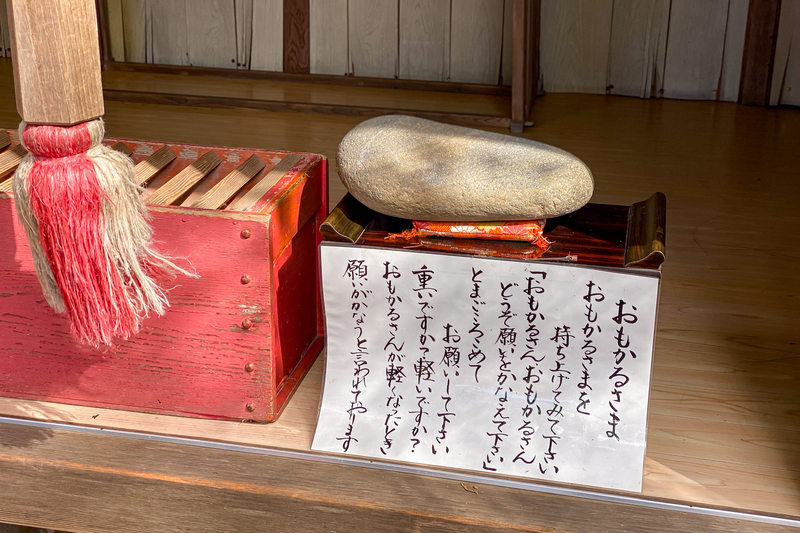 おもかるさま
おもかるさまを
持ち上げてみて下さい
「おもかるさん、おもかるさん
どうぞ願いをかなえて下さい」
とまごころこめて
お願いして下さい
重いですか?軽いですか?
おもかるさんが軽くなったとき
願いがかなうと言われております